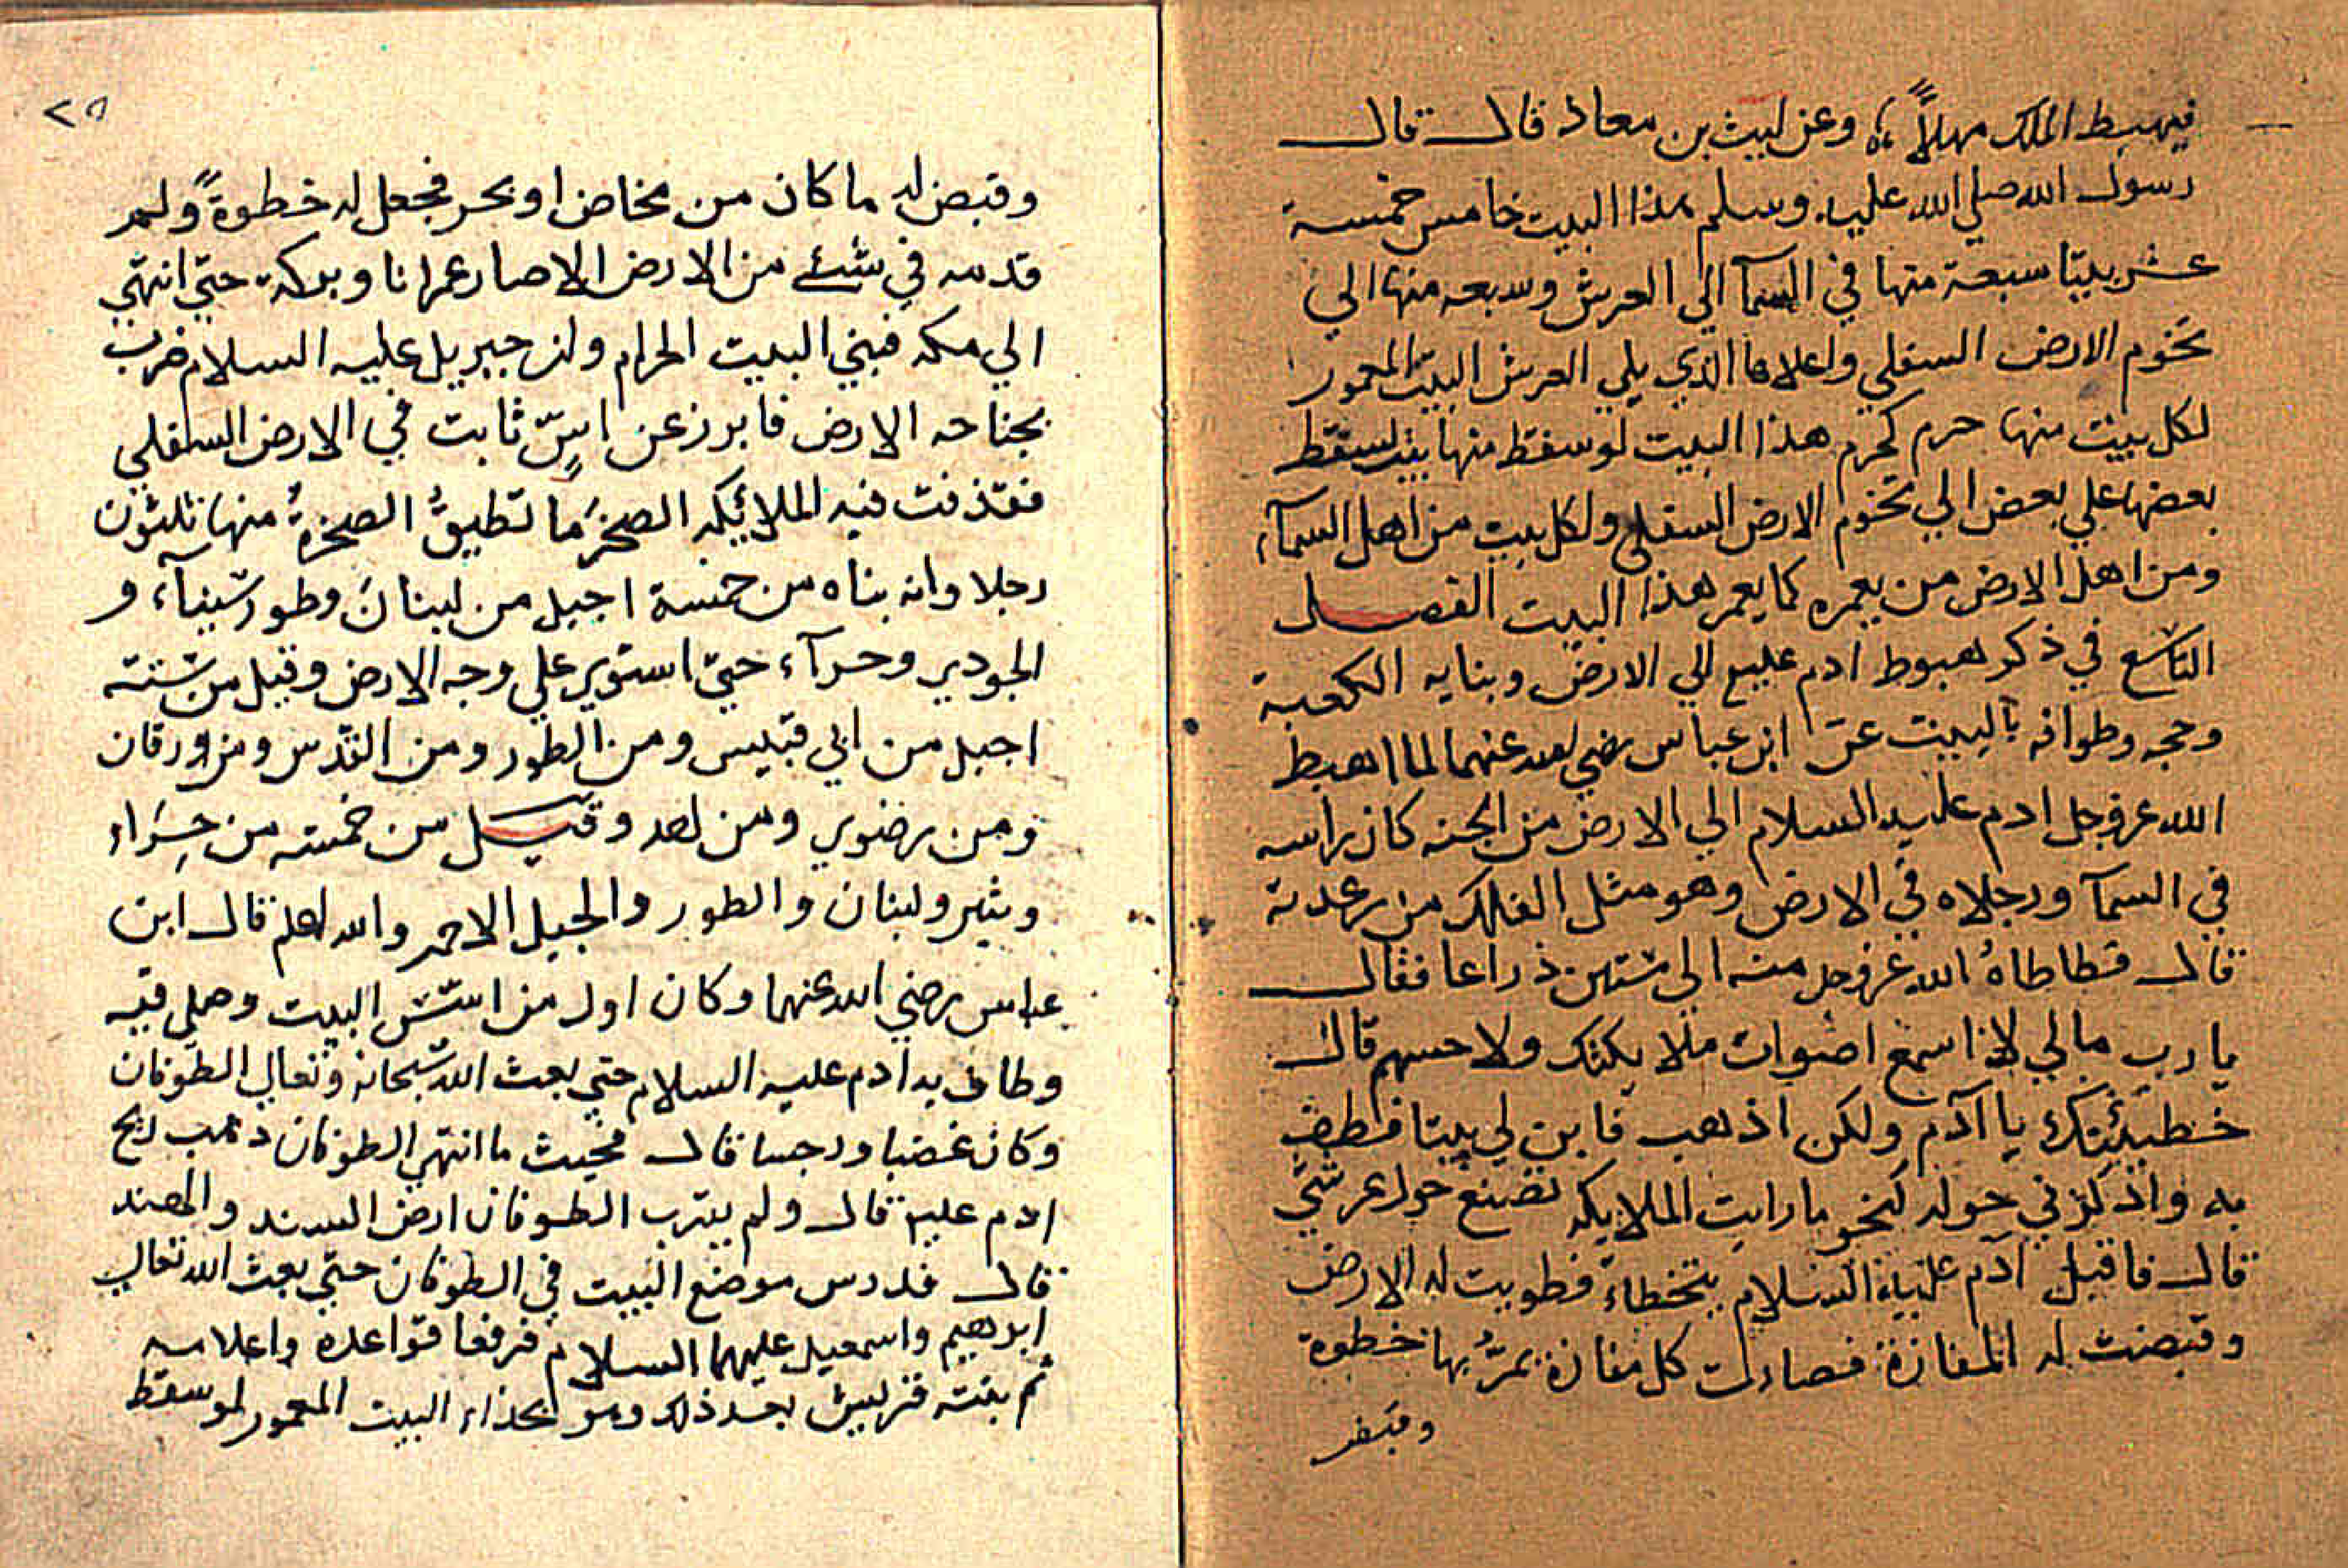 فيهبط الملك مهلاً وعن ليث بن معاذ قال قال
رسول الله صلي الله عليه وسلم هذا البيت خامس خمسة
عشر بيتا سبعة منها في السمآ الي العرش وسبعه منها الي
تخوم الارض السفلي واعلاها الذي يلي العرش البيت المعمور
لكل بيت منها حرم كحرم هذا البيت لو سقط منها بيت لسقط
بعضها علي بعض الي تخوم الارض السفلي ولكل بيت من اهل السمآء
ومن اهل الارض من يعمره كما يعمر هذا البيت الفصل
التاسع في ذكر هبوط ادم عليع الي الارض وبنايه الكعبة
وحجه وطوافه بالبيت عن ابن عباس رضي الله عنهما لما اهبط
الله عز وجل ادم عليه السلام الي الارض من الجنه كان راسه
في السمآ ورجلاه في الارض وهو مثل الفلك من رعدته
قال فطاطاهُ الله عز وجل منه الي ستين ذراعا فقال
يا رب مالي لا اسمع اصوات ملايكتك ولا حسهم قال
خطيئتك يا آدم ولكن اذهب فابن لي بيتا فطف
به واذكرني حوله كنحو ما رايت الملايكه تصنع حول عرشي
قال فاقبل آدم عليه السلام يتخطاء فطويت له الارض
وقبضت له المفازة فصارت كل مفازة يمرُّ بها خطوة
وقبض
٢٥
وقبض له ما كان من مخاض او بحر فجعل له خطوةً ولم
قدمه في شئ من الارض الا صار عمرانا وبركة حتي انتهي
الي مكه فبني البيت الحرام وان جبريل عليه السلام ضرب
بجناحه الارض فابرز عن اسٍّ ثابت في الارض السفلي
فقذفت فيه الملائكه الصخر ما تطيقُ الصخرةُ منها ثلثون
رجلا وانه بناه من خمسة اجبل من لبنان وطور سيناء و
الجودي وحرآء حتي استوي علي وجه الارض وقيل من ستته
اجبل من ابي قبيس ومن الطور ومن القدس ومن ورقان
ومن رضوي ومن احد وقيل من خمسته من حِرَاء
وثبير ولبنان والطور والجبل الاحمر والله اعلم قال ابن
عباس رضي الله عنهما وكان اول من اسّس البيت وصلي فيه
وطاف به ادم عليه السلام حتي بعث الله سبحانه وتعالي الطوفان
وكان غضبا ورجسا قال فحيث ما انتهي الطوفان ذهب ريح
ادم عليه قال ولم يقرب الطوفان ارض السند والهند
قال فدرس موضع البيت في الطوفان حتي بعث الله تعالي
ابرهيم واسمعيل عليهما السلام فرفعا قواعده واعلامه
ثم بنته قريش بعد ذلك وهو بحذاء البيت المعمور لو سقط